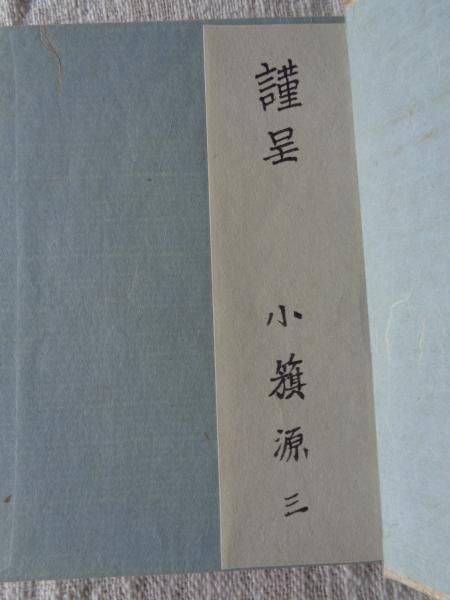 謹呈
小籏源三